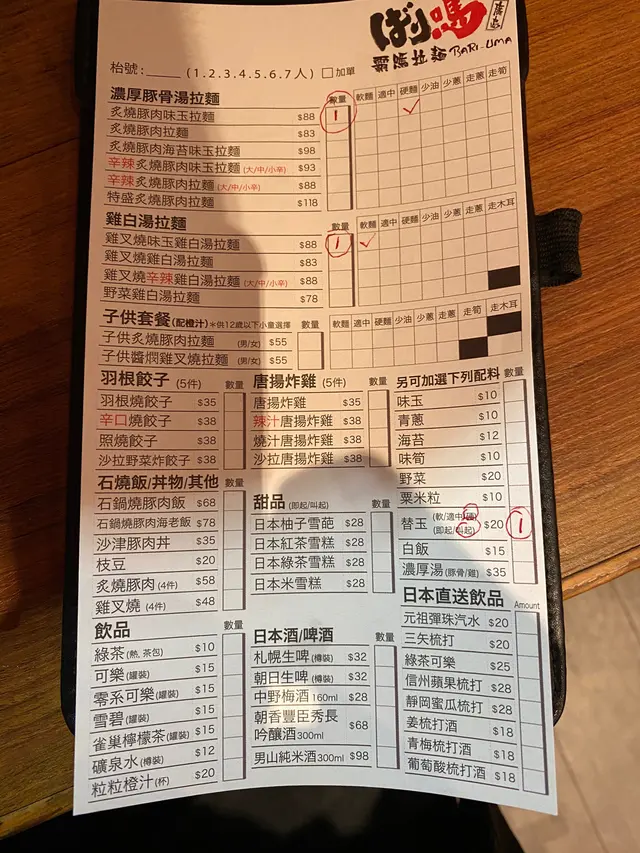 ばり嗎
廣島
霸嗎拉麵 BARI-UMA
枱號:_____ (1.2.3.4.5.6.7人) □加單
濃厚豚骨湯拉麵 數量 軟麵 適中 硬麵 少油 少蔥 走蔥 走筍
炙燒豚肉味玉拉麵 $88 1 ✓
炙燒豚肉拉麵 $83
炙燒豚肉海苔味玉拉麵 $98
辛辣炙燒豚肉味玉拉麵 (大/中/小辛) $93
辛辣炙燒豚肉拉麵 (大/中/小辛) $88
特盛炙燒豚肉拉麵 $118
雞白湯拉麵 數量 軟麵 適中 硬麵 少油 少蔥 走蔥 走木耳
雞叉燒味玉雞白湯拉麵 $88 1 ✓
雞叉燒雞白湯拉麵 $83
雞叉燒辛辣雞白湯拉麵 (大/中/小辛) $88
野菜雞白湯拉麵 $78
子供套餐 (配橙汁) *供12歲以下小童選擇 數量 軟麵 適中 硬麵 少油 少蔥 走蔥 走筍 走木耳
子供炙燒豚肉拉麵 (男/女) $55
子供醬燜雞叉燒拉麵 (男/女) $55
羽根餃子 (5件) 數量
羽根燒餃子 $35
辛口燒餃子 $38
照燒餃子 $38
沙拉野菜炸餃子 $38
石燒飯/丼物/其他 數量
石鍋燒豚肉飯 $68
石鍋燒豚肉海老飯 $78
沙津豚肉丼 $35
枝豆 $20
炙燒豚肉 (4件) $58
雞叉燒 (4件) $48
飲品 數量
綠茶 (熱, 茶包) $10
可樂 (罐裝) $15
零系可樂 (罐裝) $15
雪碧 (罐裝) $15
雀巢檸檬茶 (罐裝) $15
礦泉水 (樽裝) $12
粒粒橙汁 (杯) $20
唐揚炸雞 (5件) 數量
唐揚炸雞 $35
辣汁唐揚炸雞 $38
燒汁唐揚炸雞 $38
沙拉唐揚炸雞 $38
甜品 (即起/叫起) 數量
日本柚子雪葩 $28
日本紅茶雪糕 $28
日本綠茶雪糕 $28
日本米雪糕 $28
日本酒/啤酒 數量
札幌生啤 (樽裝) $32
朝日生啤 (樽裝) $32
中野梅酒 160ml $28
朝香豐臣秀長
吟釀酒 300ml $68
男山純米酒 300ml $98
另可加選下列配料 數量
味玉 $10
青蔥 $10
海苔 $12
味筍 $10
野菜 $20
粟米粒 $10
替玉 (軟/適中/硬) (即起/叫起) $20 1
白飯 $15
濃厚湯 (豚骨/雞) $35
日本直送飲品 Amount
元祖彈珠汽水 $20
三矢梳打 $20
綠茶可樂 $25
信州蘋果梳打 $28
靜岡蜜瓜梳打 $28
姜梳打酒 $18
青梅梳打酒 $18
葡萄酸梳打酒 $18